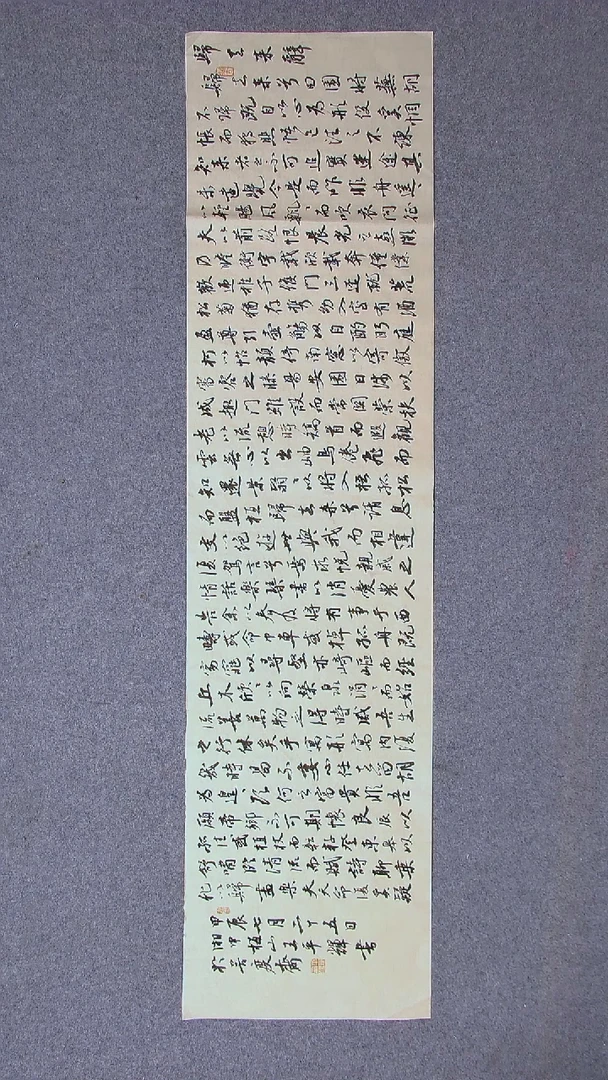 歸去來辭
歸去來兮田園將蕪胡
不歸既自以心為形役奚惆
悵而獨悲悟已往之不諫
知來者之可追實迷途其
未遠覺今是而昨非舟遙、
以輕颺風飄、而吹衣問征
夫以前路恨晨光之熹微
乃瞻衡宇載欣載奔僮僕
歡迎稚子候門三逕就荒
松菊猶存攜幼入室有酒
盈尊引壺觴以自酌眄庭
柯以怡顏倚南窓以寄傲
審容之膝易安園日涉以
成趣門雖設而常關策扶
老以流憩時矯首而遐觀
雲無心以出岫鳥倦飛而
知還景翳、以將入撫孤松
而盤桓歸去來兮請息
交以絕遊世與我而相違
復駕言兮焉求悅親戚之
情話樂琴書以消憂農人
告余以春及將有事乎西
疇或命巾車或棹孤舟既
窈窕以尋壑亦崎嶇而經
丘木欣、以向榮泉涓、而始
流善萬物之得時感吾生
之行休矣乎寓形宇內復
幾時曷不委心任去留胡
為遑、欲何之富貴非吾
願帝鄉不可期懷良辰以
孤往或植杖而耘耔登東皋以
舒嘯臨清流而賦詩聊乘
化以歸盡樂夫天命復奚疑
甲辰七月二十五日
湘中 山王平輝書
於 度齋